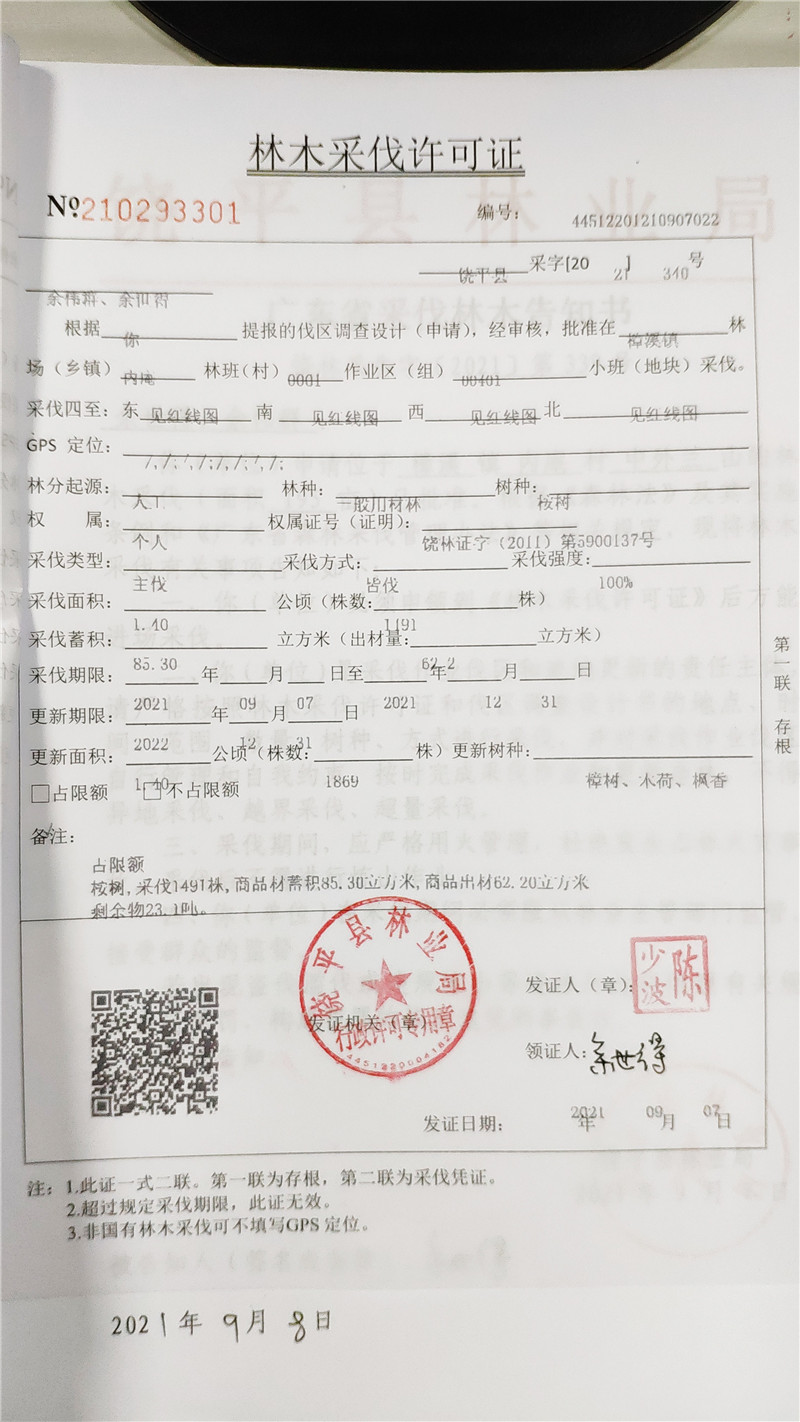 林木采伐许可证
№210293301 编号： 44512201210907022
饶平县 采字[20 21 ] 340 号
根据 你 提报的伐区调查设计（申请），经审核，批准在 樟溪镇 林
场（乡镇） 林班（村） 0001 作业区（组） 00401 小班（地块）采伐。
采伐四至：东 见红线图 南 见红线图 西 见红线图 北 见红线图
GPS 定位： /,/;/,/;/,/;/,/;
林分起源： 人工 林种： 一般用材林 树种： 桉树
权 属： 个人 权属证号（证明）： 饶林证字（2011）第5900137号
采伐类型： 主伐 采伐方式： 皆伐 采伐强度： 100%
采伐面积： 1.40 公顷（株数： 1491 株）
采伐蓄积： 85.30 立方米（出材量： 62.2 立方米）
采伐期限： 2021 年 09 月 07 日至 2021 年 12 月 31 日
更新期限： 2022 年 12 月 31 日
更新面积： 1.40 公顷（株数： 1869 株）更新树种： 樟树、木荷、枫香
□占限额 □不占限额
备注：
占限额
桉树,采伐1491株,商品材蓄积85.30立方米,商品出材62.20立方米
剩余物23.1吨。
饶平县林业局
行政许可专用章
4451220004182
发证机关（章）
发证人（章）： 陈少波
领证人： 余世得
发证日期： 2021 年 09 月 07 日
第一联 存根
注： 1.此证一式二联。第一联为存根，第二联为采伐凭证。
2.超过规定采伐期限，此证无效。
3.非国有林木采伐可不填写GPS 定位。
2021年 9月 8日